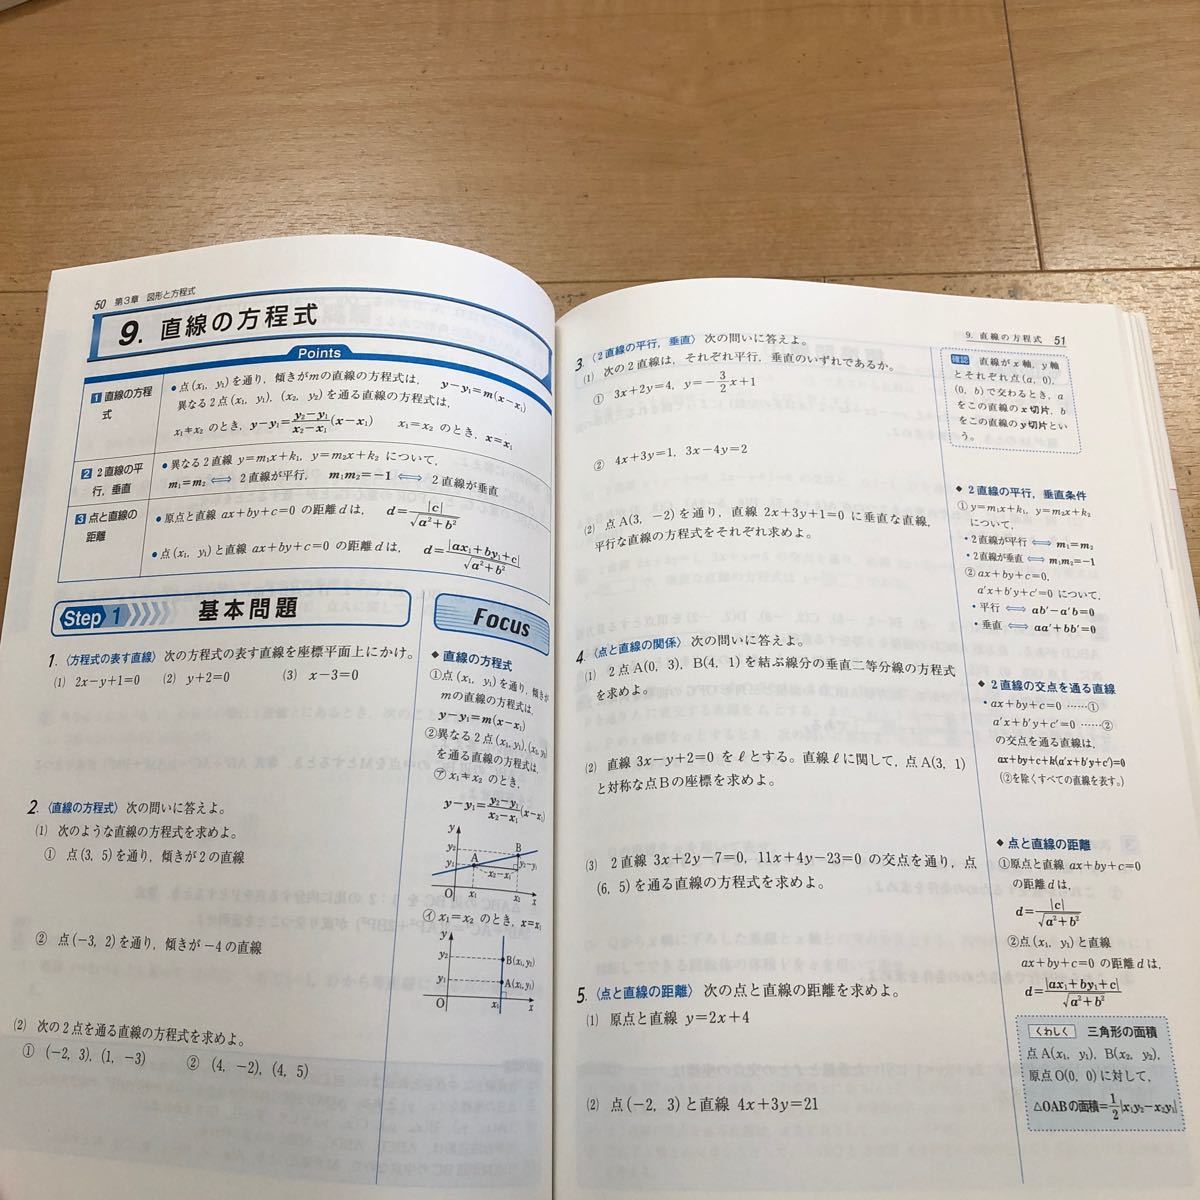 50 第3章 図形と方程式
9. 直線の方程式
Points
1 直線の方程式
●点(x₁, y₁)を通り，傾きがmの直線の方程式は， y−y₁=m(x−x₁)
異なる2点(x₁, y₁)，(x₂, y₂)を通る直線の方程式は，
x₁≠x₂ のとき，y−y₁=(y₂−y₁)/(x₂−x₁)(x−x₁) x₁=x₂ のとき，x=x₁
2 2直線の平行，垂直
●異なる2直線 y=m₁x+k₁，y=m₂x+k₂ について，
m₁=m₂ ⟺ 2直線が平行， m₁m₂=−1 ⟺ 2直線が垂直
3 点と直線の距離
●原点と直線 ax+by+c=0 の距離dは， d=|c|/√(a²+b²)
●点(x₁, y₁)と直線 ax+by+c=0 の距離dは， d=|ax₁+by₁+c|/√(a²+b²)
Step 1 基本問題
1.〈方程式の表す直線〉次の方程式の表す直線を座標平面上にかけ。
(1) 2x−y+1=0 (2) y+2=0 (3) x−3=0
2.〈直線の方程式〉次の問いに答えよ。
(1) 次のような直線の方程式を求めよ。
① 点(3, 5)を通り，傾きが2の直線
② 点(−3, 2)を通り，傾きが−4の直線
(2) 次の2点を通る直線の方程式を求めよ。
① (−2, 3)，(1, −3) ② (4, −2)，(4, 5)
Focus
◆ 直線の方程式
①点(x₁, y₁)を通り，傾きが
mの直線の方程式は，
y−y₁=m(x−x₁)
②異なる2点(x₁, y₁)，(x₂, y₂)
を通る直線の方程式は，
㋐ x₁≠x₂ のとき，
y−y₁=(y₂−y₁)/(x₂−x₁)(x−x₁)
y
y₂
B
y₁
A
y₂−y₁
x₂−x₁
O x₁ x₂ x
㋑ x₁=x₂ のとき，x=x₁
y
y₂
B(x₁, y₂)
y₁
A(x₁, y₁)
O x₁ x
9. 直線の方程式 51
3.〈2直線の平行，垂直〉次の問いに答えよ。
(1) 次の2直線は，それぞれ平行，垂直のいずれであるか。
① 3x+2y=4，y=−3/2x+1
② 4x+3y=1，3x−4y=2
(2) 点A(3, −2)を通り，直線 2x+3y+1=0 に垂直な直線，
平行な直線の方程式をそれぞれ求めよ。
4.〈点と直線の関係〉次の問いに答えよ。
(1) 2点A(0, 3)，B(4, 1)を結ぶ線分の垂直二等分線の方程式
を求めよ。
(2) 直線 3x−y+2=0 をℓとする。直線ℓに関して，点A(3, 1)
と対称な点Bの座標を求めよ。
(3) 2直線 3x+2y−7=0，11x+4y−23=0 の交点を通り，点
(6, 5)を通る直線の方程式を求めよ。
5.〈点と直線の距離〉次の点と直線の距離を求めよ。
(1) 原点と直線 y=2x+4
(2) 点(−2, 3)と直線 4x+3y=21
確認 直線がx軸，y軸
とそれぞれ点(a, 0)，
(0, b)で交わるとき，a
をこの直線のx切片，b
をこの直線のy切片とい
う。
◆ 2直線の平行，垂直条件
①y=m₁x+k₁，y=m₂x+k₂
について，
・2直線が平行 ⟺ m₁=m₂
・2直線が垂直 ⟺ m₁m₂=−1
②ax+by+c=0，
a′x+b′y+c′=0 について
・平行 ⟺ ab′−a′b=0
・垂直 ⟺ aa′+bb′=0
◆ 2直線の交点を通る直線
・ax+by+c=0 ……①
a′x+b′y+c′=0 ……②
の交点を通る直線は，
ax+by+c+k(a′x+b′y+c′)=0
(②を除くすべての直線を表す。)
◆ 点と直線の距離
①原点と直線 ax+by+c=0
の距離dは，
d=|c|/√(a²+b²)
②点(x₁, y₁)と直線
ax+by+c=0 の距離dは，
d=|ax₁+by₁+c|/√(a²+b²)
くわしく 三角形の面積
点A(x₁, y₁)，B(x₂, y₂)，
原点O(0, 0)に対して，
△OABの面積=1/2|x₁y₂−x₂y₁|